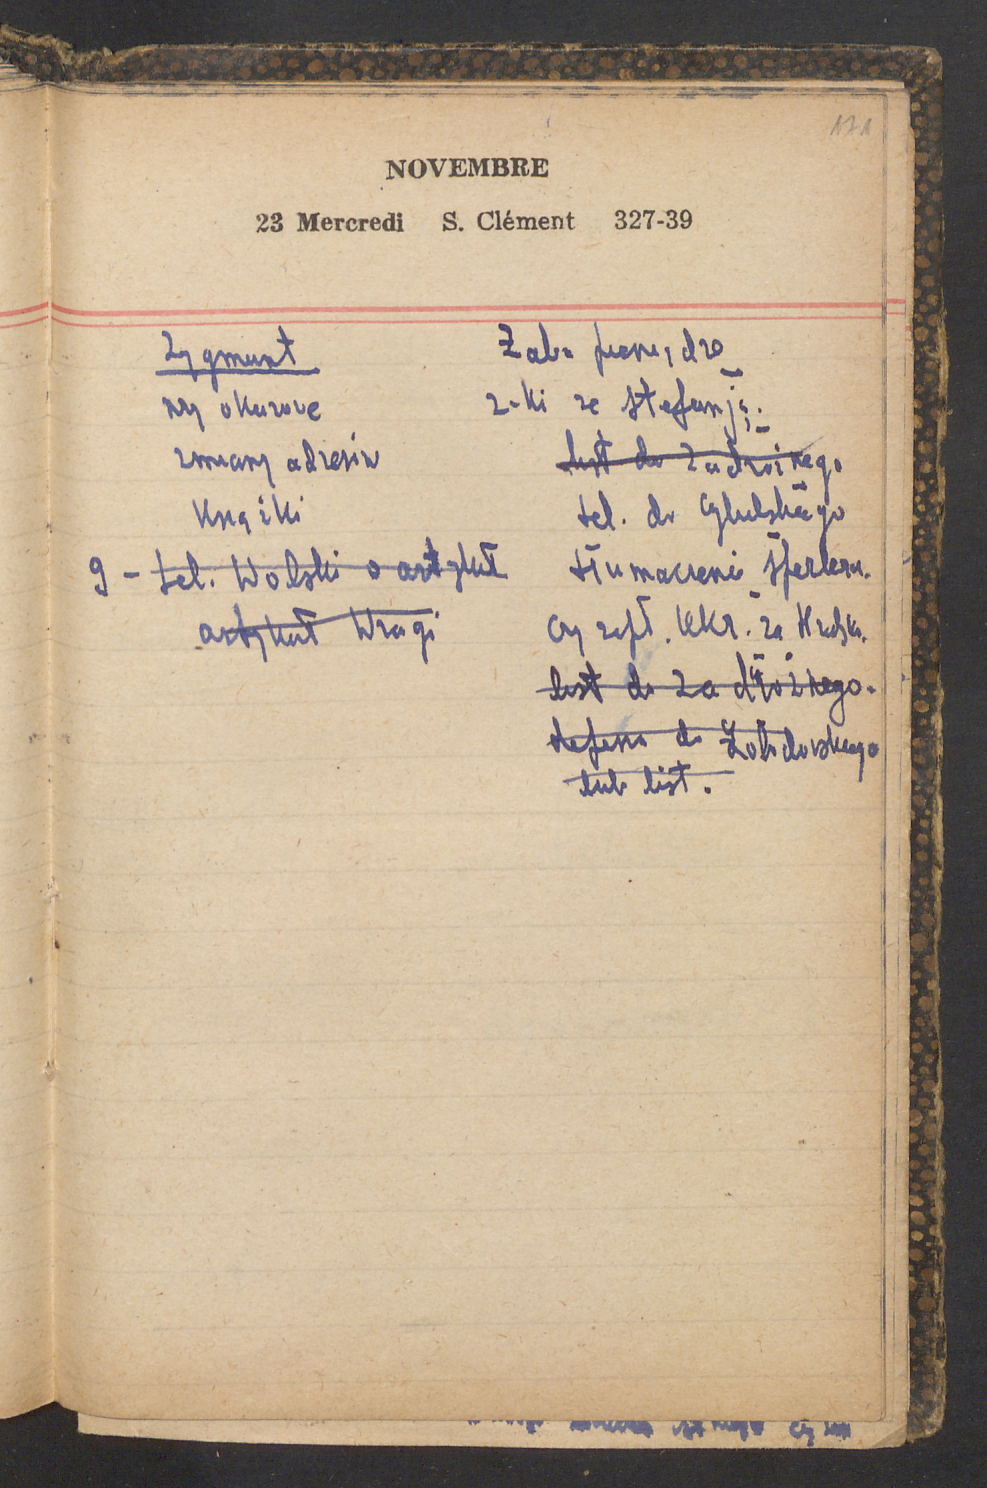 171
NOVEMBRE
23 Mercredi S. Clément 327-39
Zygmunt
nry okazowe
zmiany adresów
Książki
9 - tel. Wolski o artykuł
artykuł Wragi
Zab. pieniądze
z-ki ze Stefanją.
list do Zadrożnego
tel. do
tłumaczenie
czy zapł. KKr. za
list do Zadrożnego.
telefon do Żołądowskiego
lub list.